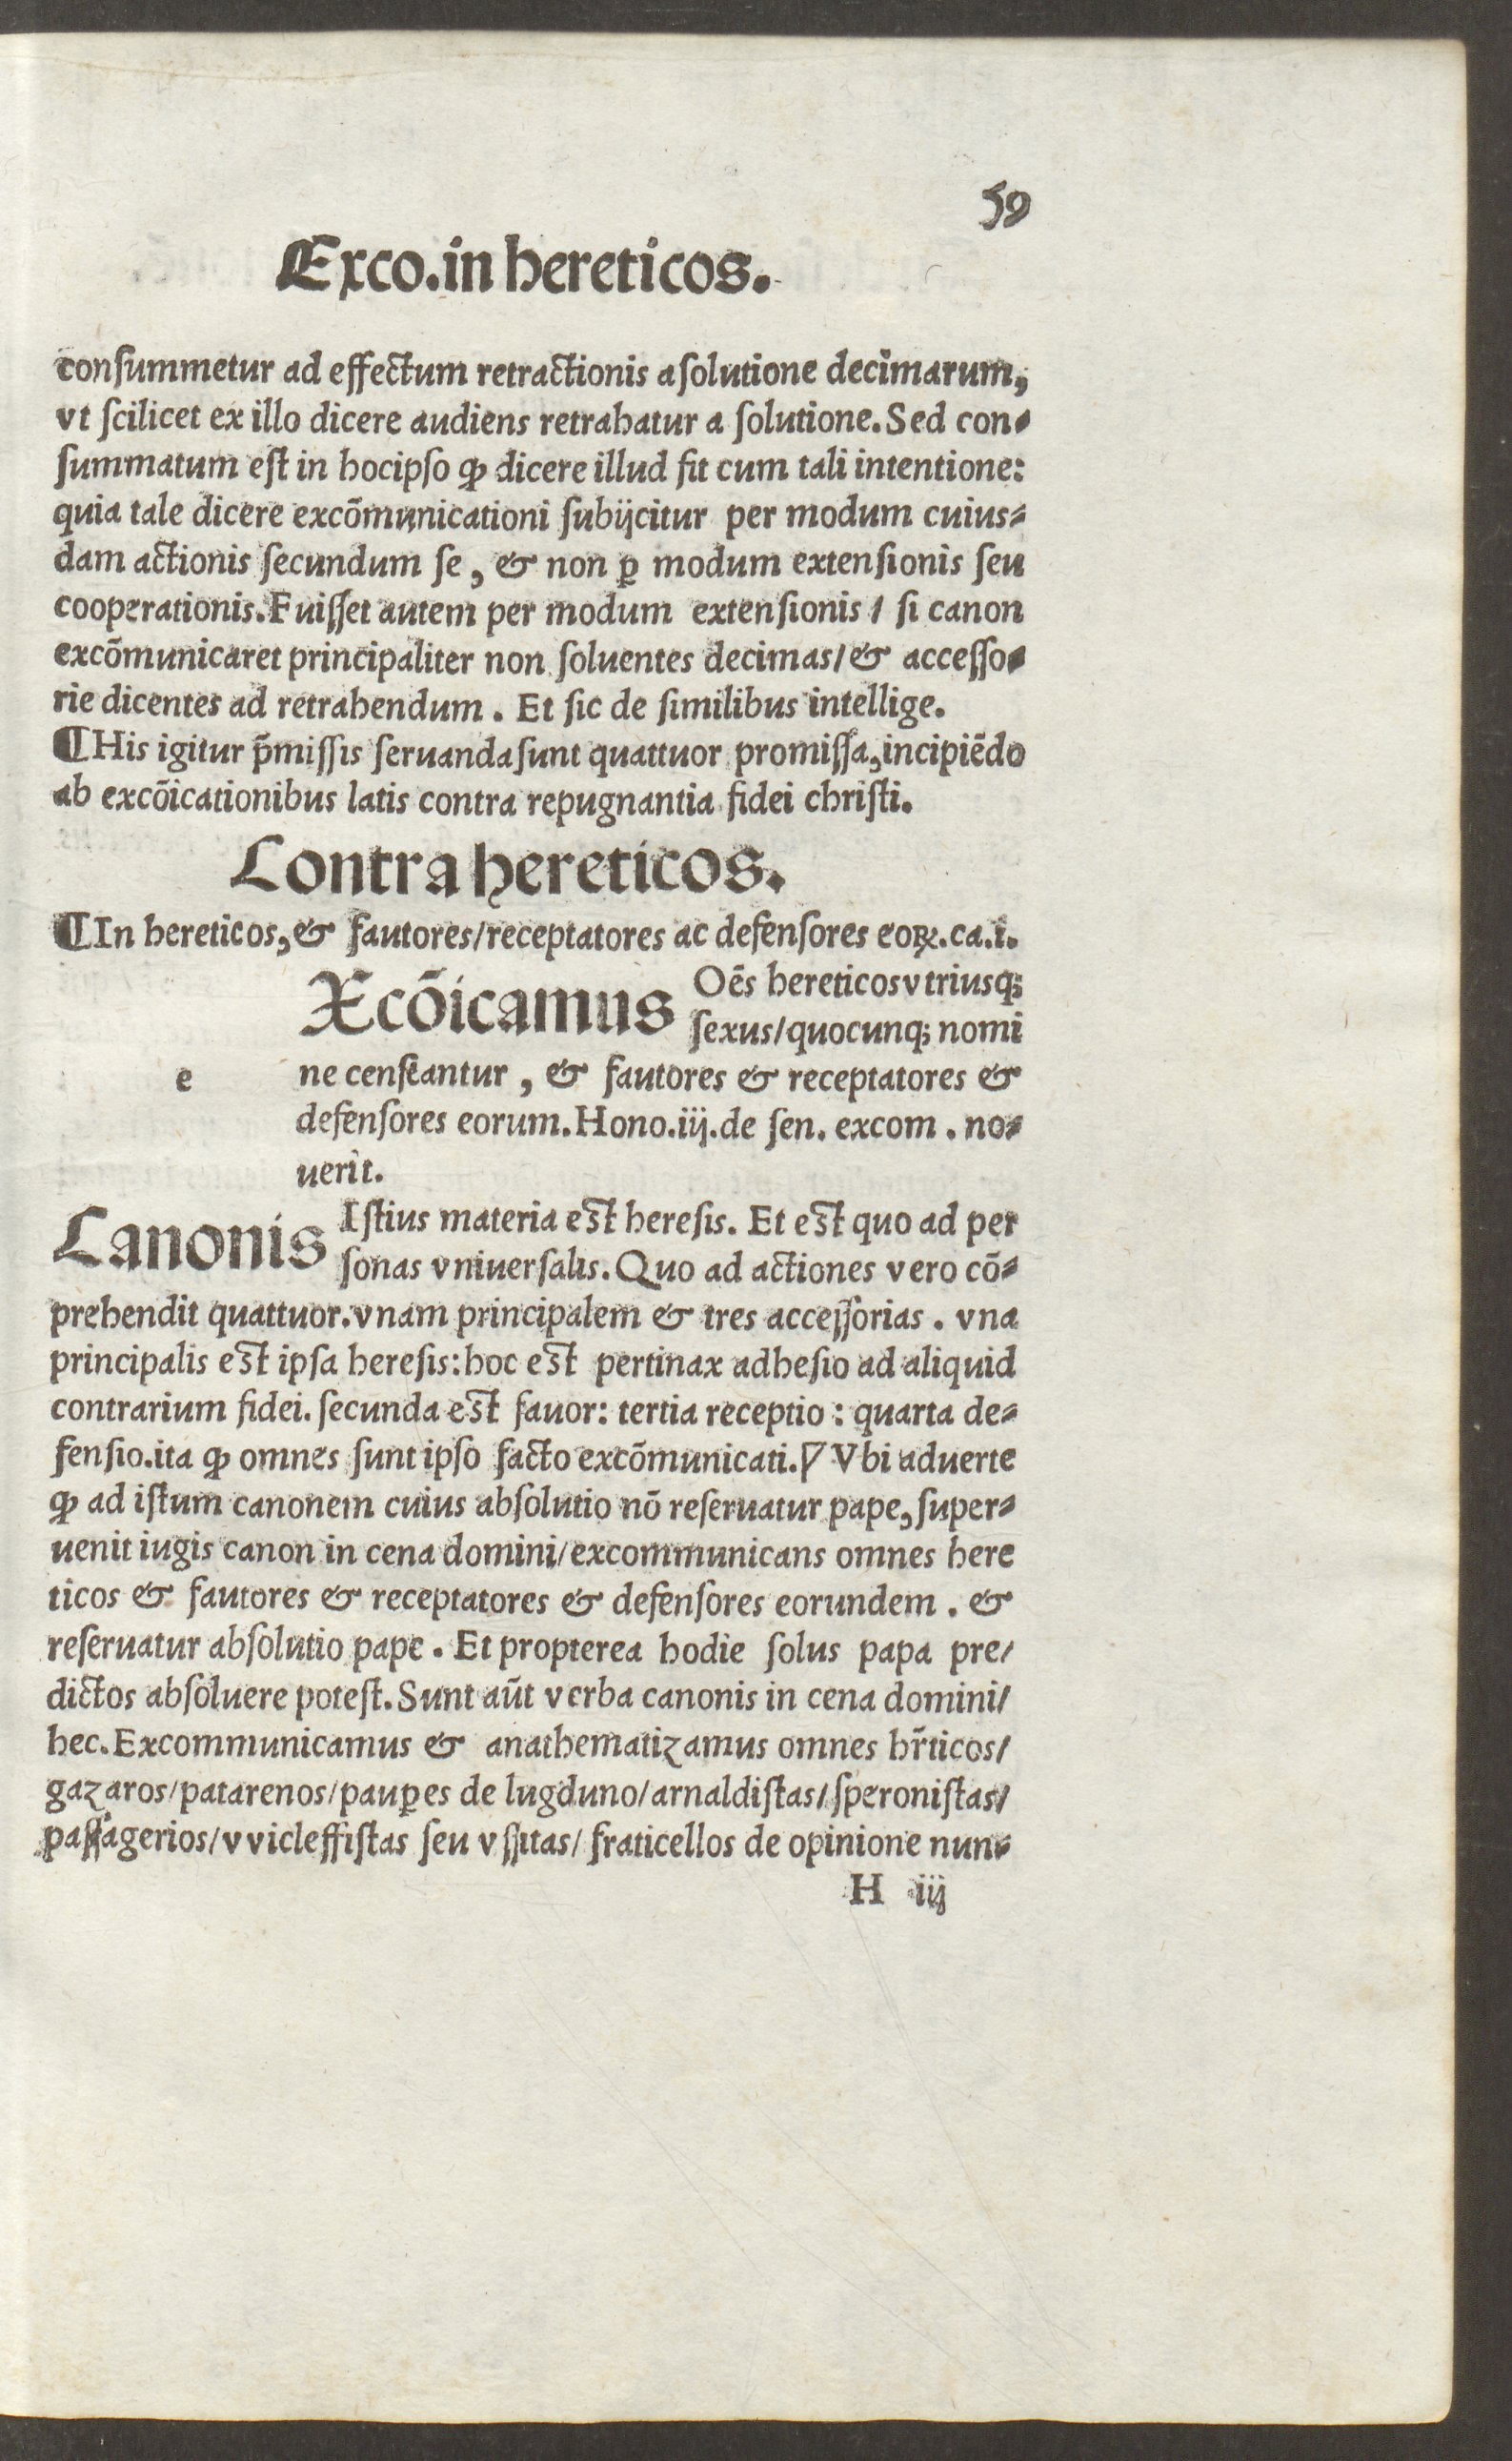 59
Exco.in hereticos.
conſummetur ad effectum retractionis a ſolutione decimarum,
vt ſcilicet ex illo dicere audiens retrahatur a ſolutione. Sed con⸗
ſummatum eſt in hocipſo ꝙ dicere illud fit cum tali intentione:
quia tale dicere excõmunicationi ſubijcitur per modum cuius⸗
dam actionis ſecundum ſe, & non ꝑ modum extenſionis ſeu
cooperationis. Fuiſſet autem per modum extenſionis / ſi canon
excõmunicaret principaliter non ſoluentes decimas/& acceſſo⸗
rie dicentes ad retrahendum. Et ſic de ſimilibus intellige.
¶His igitur p̃miſſis ſeruanda ſunt quattuor promiſſa, incipiẽdo
ab excõicationibus latis contra repugnantia fidei chriſti.
Contra hereticos.
¶In hereticos,& fautores/receptatores ac defenſores eoꝝ.ca.i.
Xcõicamus Oẽs hereticos vtriusq;
ſexus/quocunq; nomi
e ne cenſeantur, & fautores & receptatores &
defenſores eorum. Hono.iij.de ſen. excom. no⸗
uerit.
Canonis Iſtius materia eſt hereſis. Et eſt quo ad per
ſonas vniuerſalis. Quo ad actiones vero cõ⸗
prehendit quattuor. vnam principalem & tres acceſſorias. vna
principalis eſt ipſa hereſis: hoc eſt pertinax adheſio ad aliquid
contrarium fidei. ſecunda eſt fauor: tertia receptio: quarta de⸗
fenſio. ita ꝙ omnes ſunt ipſo facto excõmunicati. Vbi aduerte
ꝙ ad iſtum canonem cuius abſolutio nõ reſeruatur pape, ſuper⸗
uenit iugis canon in cena domini/excommunicans omnes here
ticos & fautores & receptatores & defenſores eorundem. &
reſeruatur abſolutio pape. Et propterea hodie ſolus papa pre/
dictos abſoluere poteſt. Sunt aũt verba canonis in cena domini/
hec. Excommunicamus & anathematizamus omnes hr̃ticos/
gazaros/patarenos/pauꝑes de lugduno/arnaldiſtas/ſperoniſtas/
paſſagerios/vvicleffiſtas ſeu vſſitas/ fraticellos de opinione nun⸗
H iij